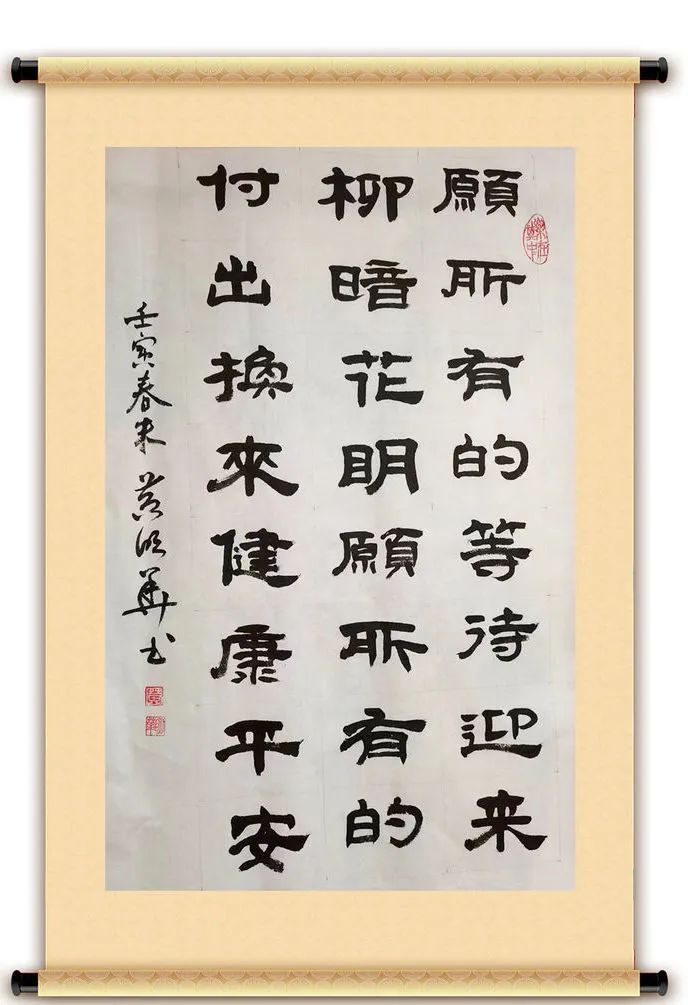 願所有的等待迎来
柳暗花明願所有的
付出換來健康平安
壬寅春末 黄華书